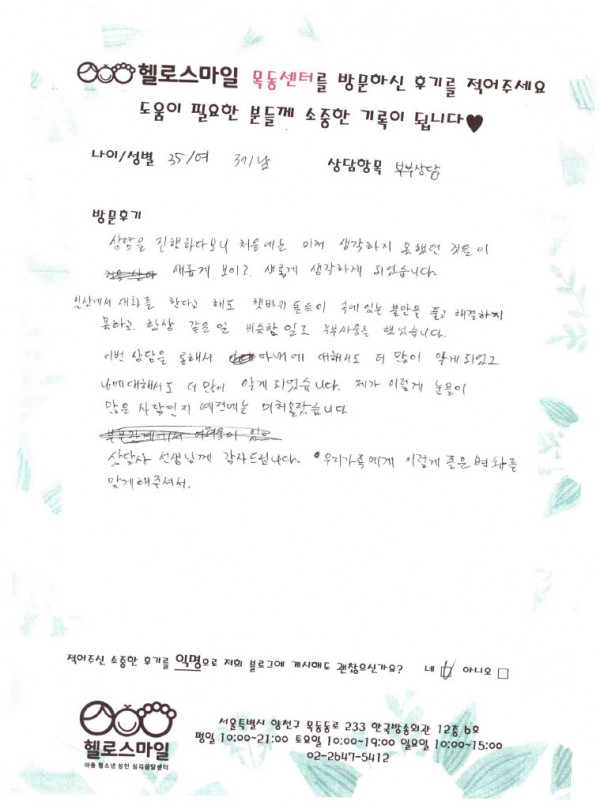 헬로스마일 목동센터를 방문하신 후기를 적어주세요
도움이 필요한 분들께 소중한 기록이 됩니다♥
나이/성별 35/여 37/남 상담항목 부부상담
방문후기
상담을 진행하다보니 처음에는 미처 생각하지 못했던 것들이
새롭게 보이고, 새롭게 생각하게 되었습니다.
일상에서 대화를 한다고 해도 쳇바퀴 돌듯이 속에 있는 불만을 풀고 해결하지
못하고, 항상 같은 일 비슷한 일로 부부싸움을 했었습니다.
이번 상담을 통해서 아내에 대해서도 더 많이 알게 되었고
나에 대해서도 더 많이 알게 되었습니다. 제가 이렇게 눈물이
많은 사람인지 예전에는 미처 몰랐습니다
부부관계에서 어려움이 있
상담사 선생님께 감사드립니다. 우리가족에게 이렇게 좋은 변화를
맞게해주셔서.
적어주신 소중한 후기를 익명으로 저희 블로그에 게시해도 괜찮으신가요? 네 ☑ 아니오 □
헬로스마일
아동 청소년 성인 심리상담센터
서울특별시 양천구 목동동로 233 한국방송회관 12층 6호
평일 10:00~21:00 토요일 10:00~19:00 일요일 10:00~15:00
02-2647-5412